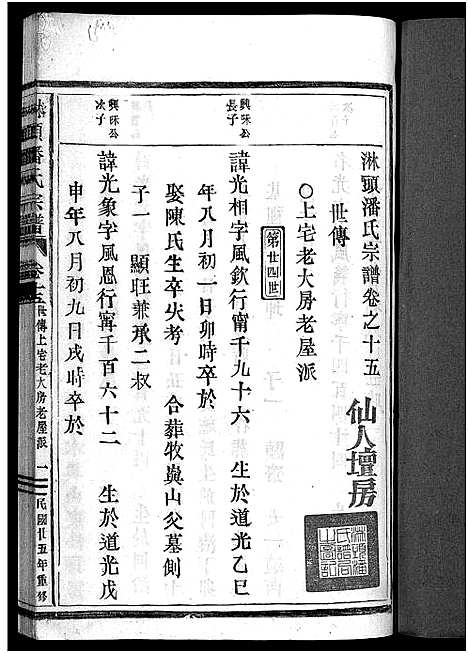 淋頭潘氏宗譜卷之十五
仙人壇房
世傳
○上宅老大房老屋派
第廿四世
興味公
長子
諱光相字風欽行甯千九十六 生於道光乙巳
年八月初一日卯時卒於
娶陳氏生卒失考 合葬牧與山父墓側
子一 顯旺兼承二叔
興味公
次子
諱光象字風恩行甯千百六十二 生於道光戊
申年八月初九日戌時卒於
淋頭潘氏宗譜 卷十五 世傳上宅老大房老屋派 一 民國廿五年重修